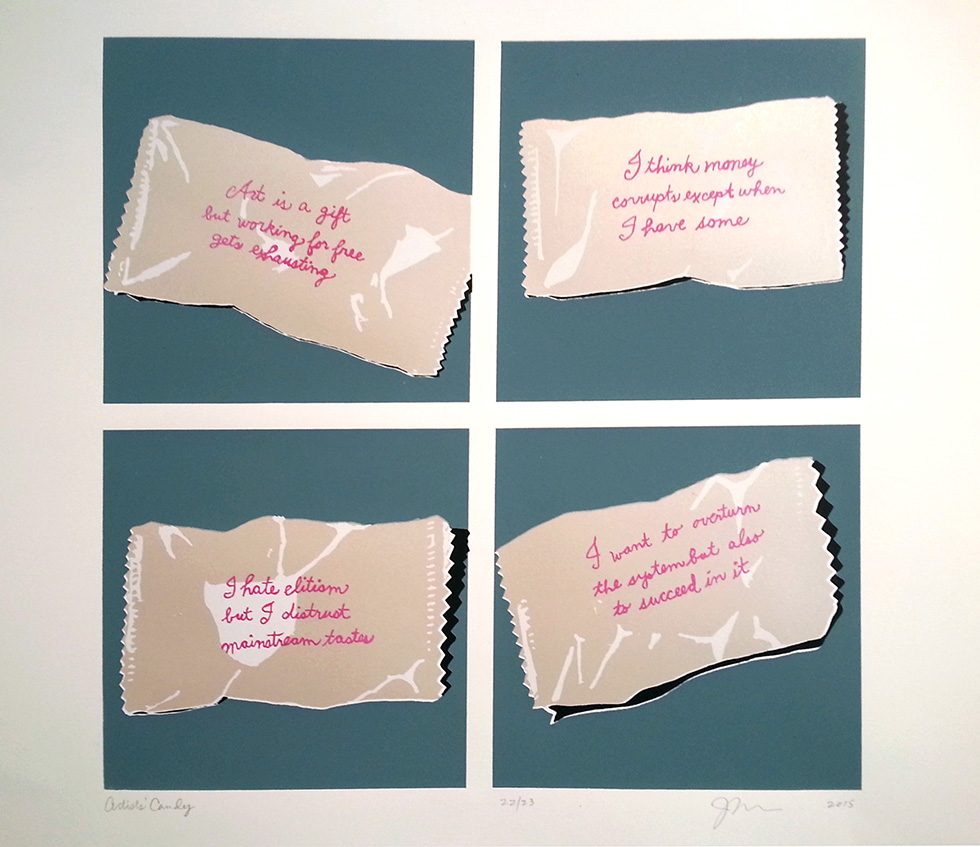 Art is a gift
but working for free
gets exhausting
I think money
corrupts except when
I have some
I hate elitism
but I distrust
mainstream tastes
I want to overturn
the system but also
to succeed in it
Artists' Candy
22/23
2015